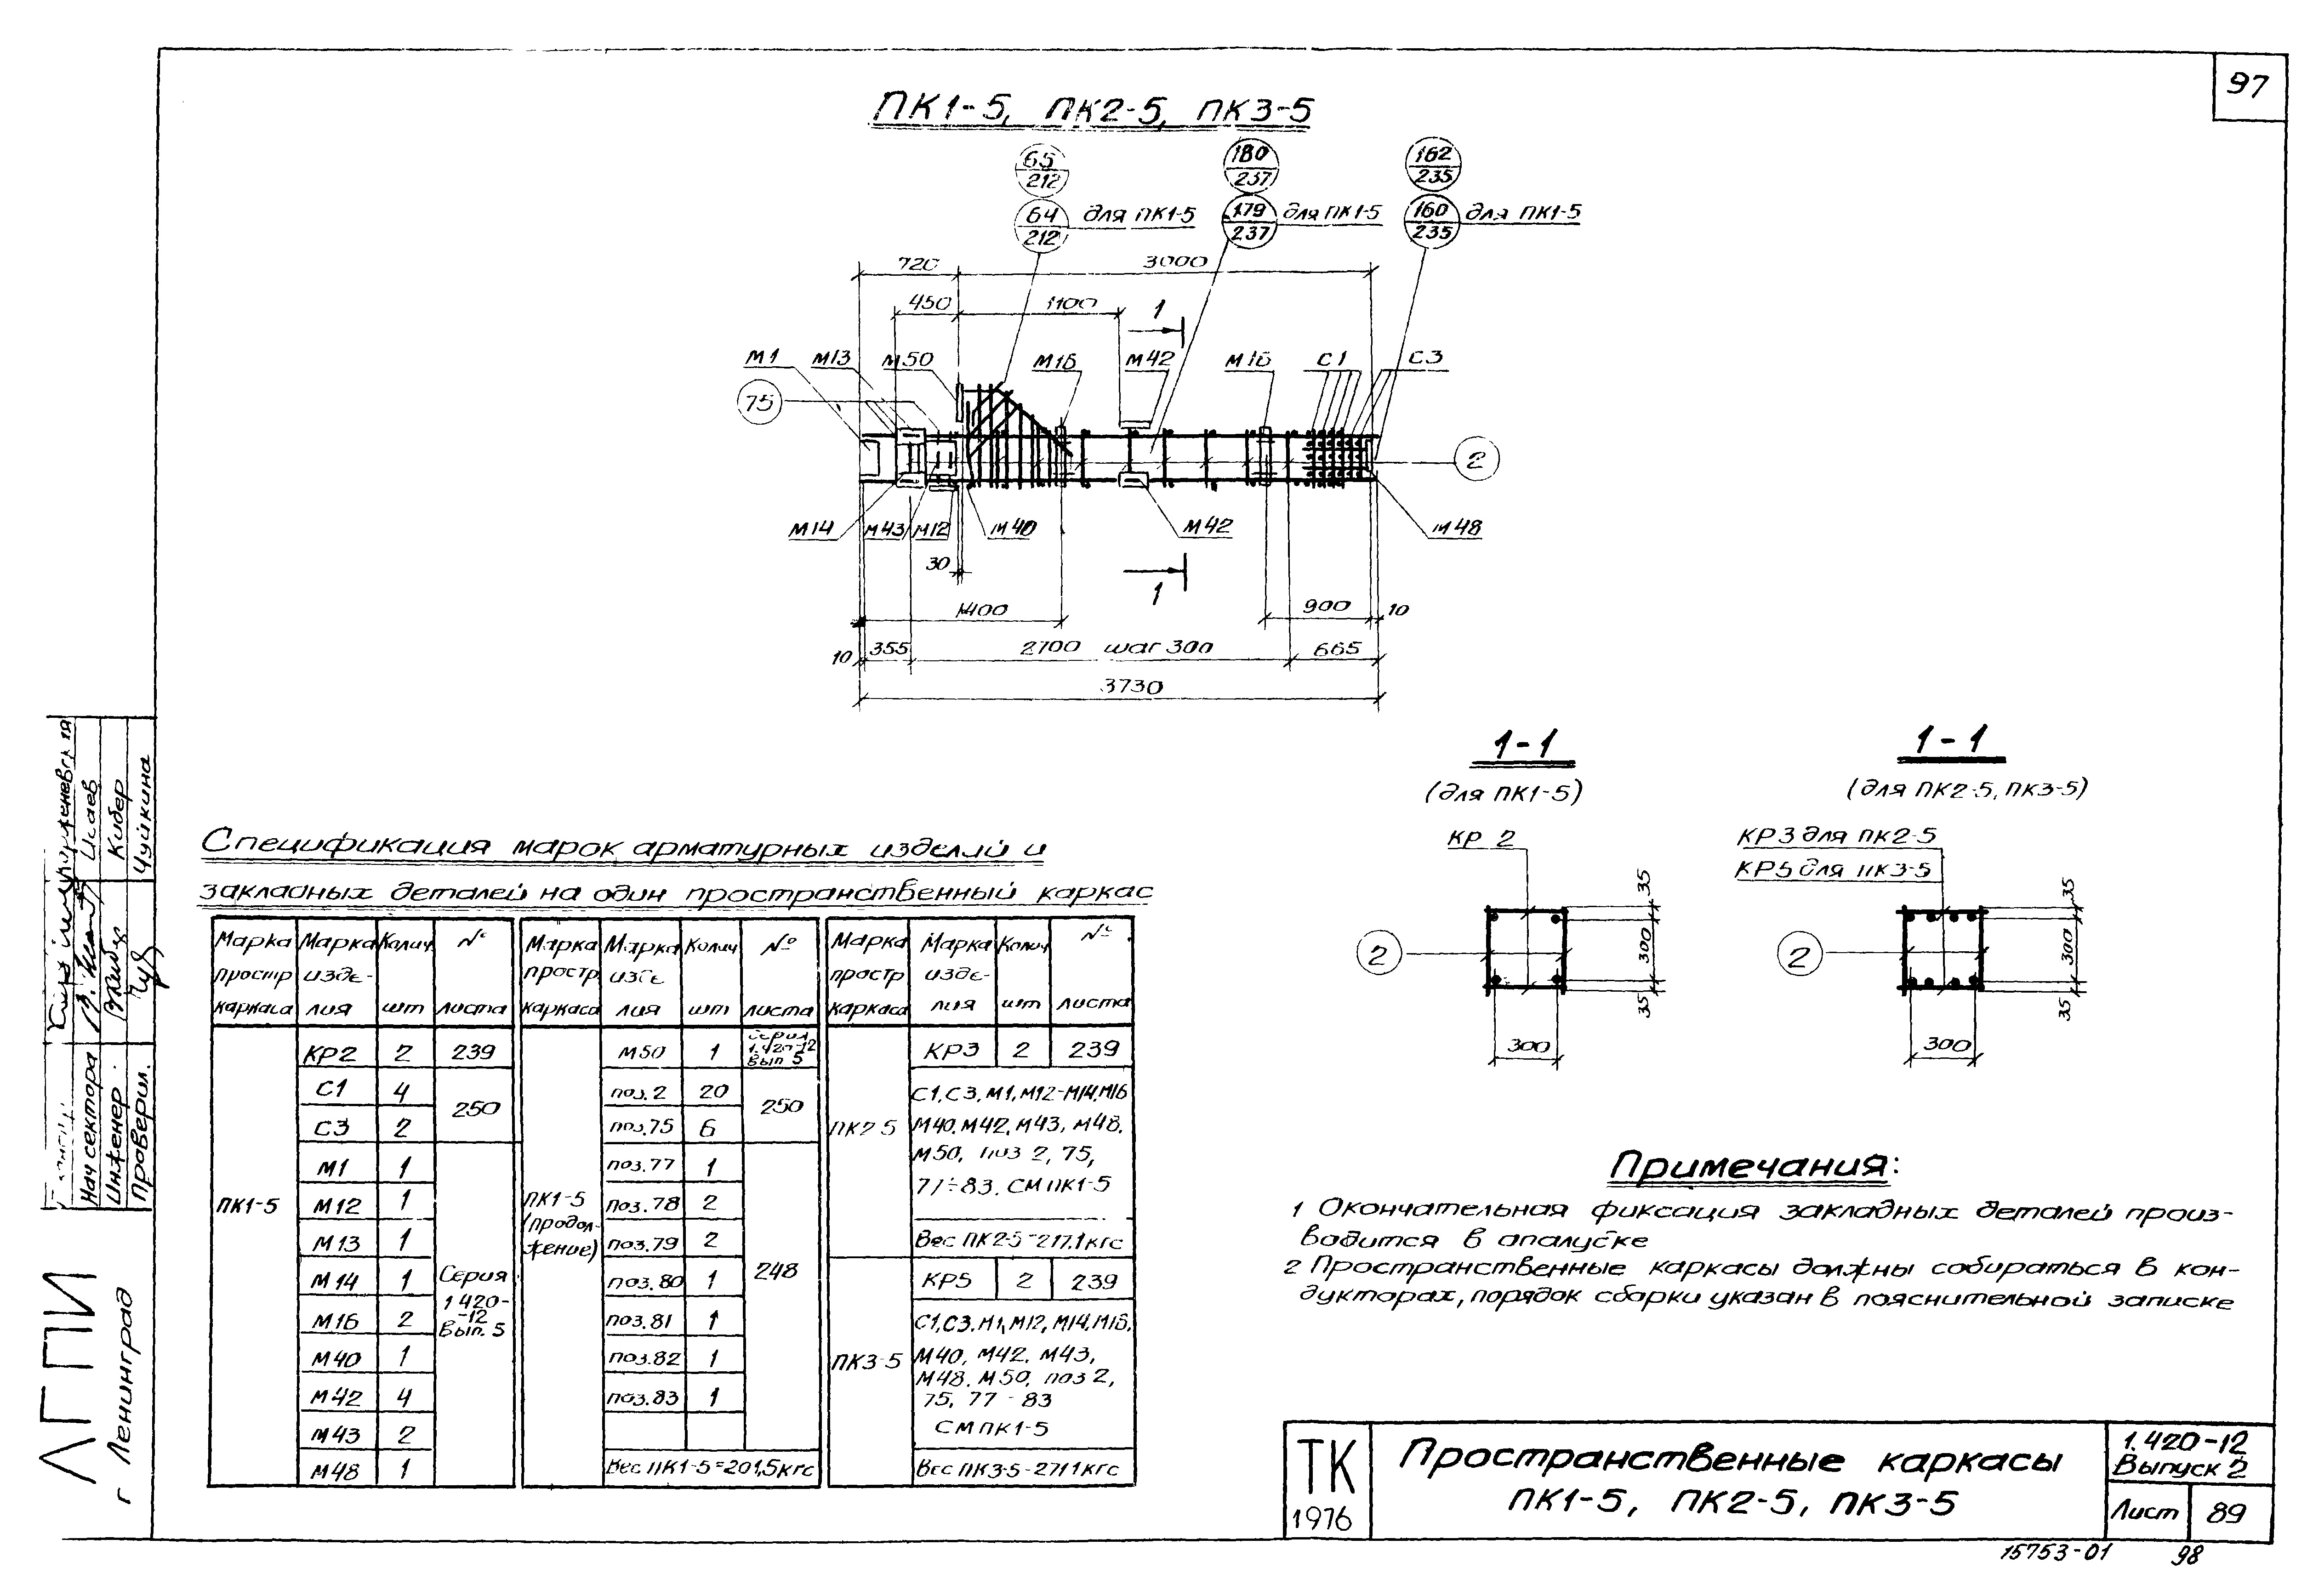 97
ПК1-5, ПК2-5, ПК3-5
65
212
64
212
для ПК1-5
180
237
179
237
для ПК1-5
162
235
160
235
для ПК1-5
720
3000
450
1100
1
М1
М13
М50
М16
М42
М16
С1
С3
75
2
М14
М43
М12
М40
М42
М48
30
1
1400
900
10
10
355
2700 шаг 300
665
3730
1-1
(для ПК1-5)
КР 2
2
35
300
35
300
1-1
(для ПК2-5, ПК3-5)
КР3 для ПК2-5
КР5 для ПК3-5
2
35
300
35
300
Спецификация марок арматурных изделий и
закладных деталей на один пространственный каркас
Марка простр каркаса | Марка изде-лия | Колич шт | № листа
ПК1-5
КР2 2 239
С1 4
С3 2
250
М1 1
М12 1
М13 1
М14 1
М16 2
М40 1
М42 4
М43 2
М48 1
Серия
1 420-
-12
Вып. 5
Марка простр. каркаса | Марка изде лия | Колич шт | № листа
ПК1-5
(продол-
жение)
М50 1 Серия 1.420-12 Вып 5
поз. 2 20
поз. 75 6
250
поз. 77 1
поз. 78 2
поз. 79 2
поз. 80 1
поз. 81 1
поз. 82 1
поз. 83 1
248
Вес ПК1-5=201,5кгс
Марка простр каркаса | Марка изде-лия | Колич шт | № листа
ПК2 5
КР3 2 239
С1, С3, М1, М12-М14, М16
М40, М42, М43, М48,
М50, поз 2, 75,
77÷83. СМ ПК1-5
Вес ПК2-5=217,1кгс
ПК3-5
КР5 2 239
С1, С3, М1, М12, М14, М16,
М40, М42, М43,
М48, М50, поз 2,
75, 77-83
СМ ПК1-5
Вес ПК3-5-271 1кгс
Примечания:
1 Окончательная фиксация закладных деталей произ-
водится в опалубке
2 Пространственные каркасы должны собираться в кон-
дукторах, порядок сборки указан в пояснительной записке
ТК
1976
Пространственные каркасы
ПК1-5, ПК2-5, ПК3-5
1.420-12
Выпуск 2
Лист
89
15753-01
98
Нач сектора
Исаев
Инженер
Кибер
Проверил.
Чуйкина
ЛГПИ
г Ленинград